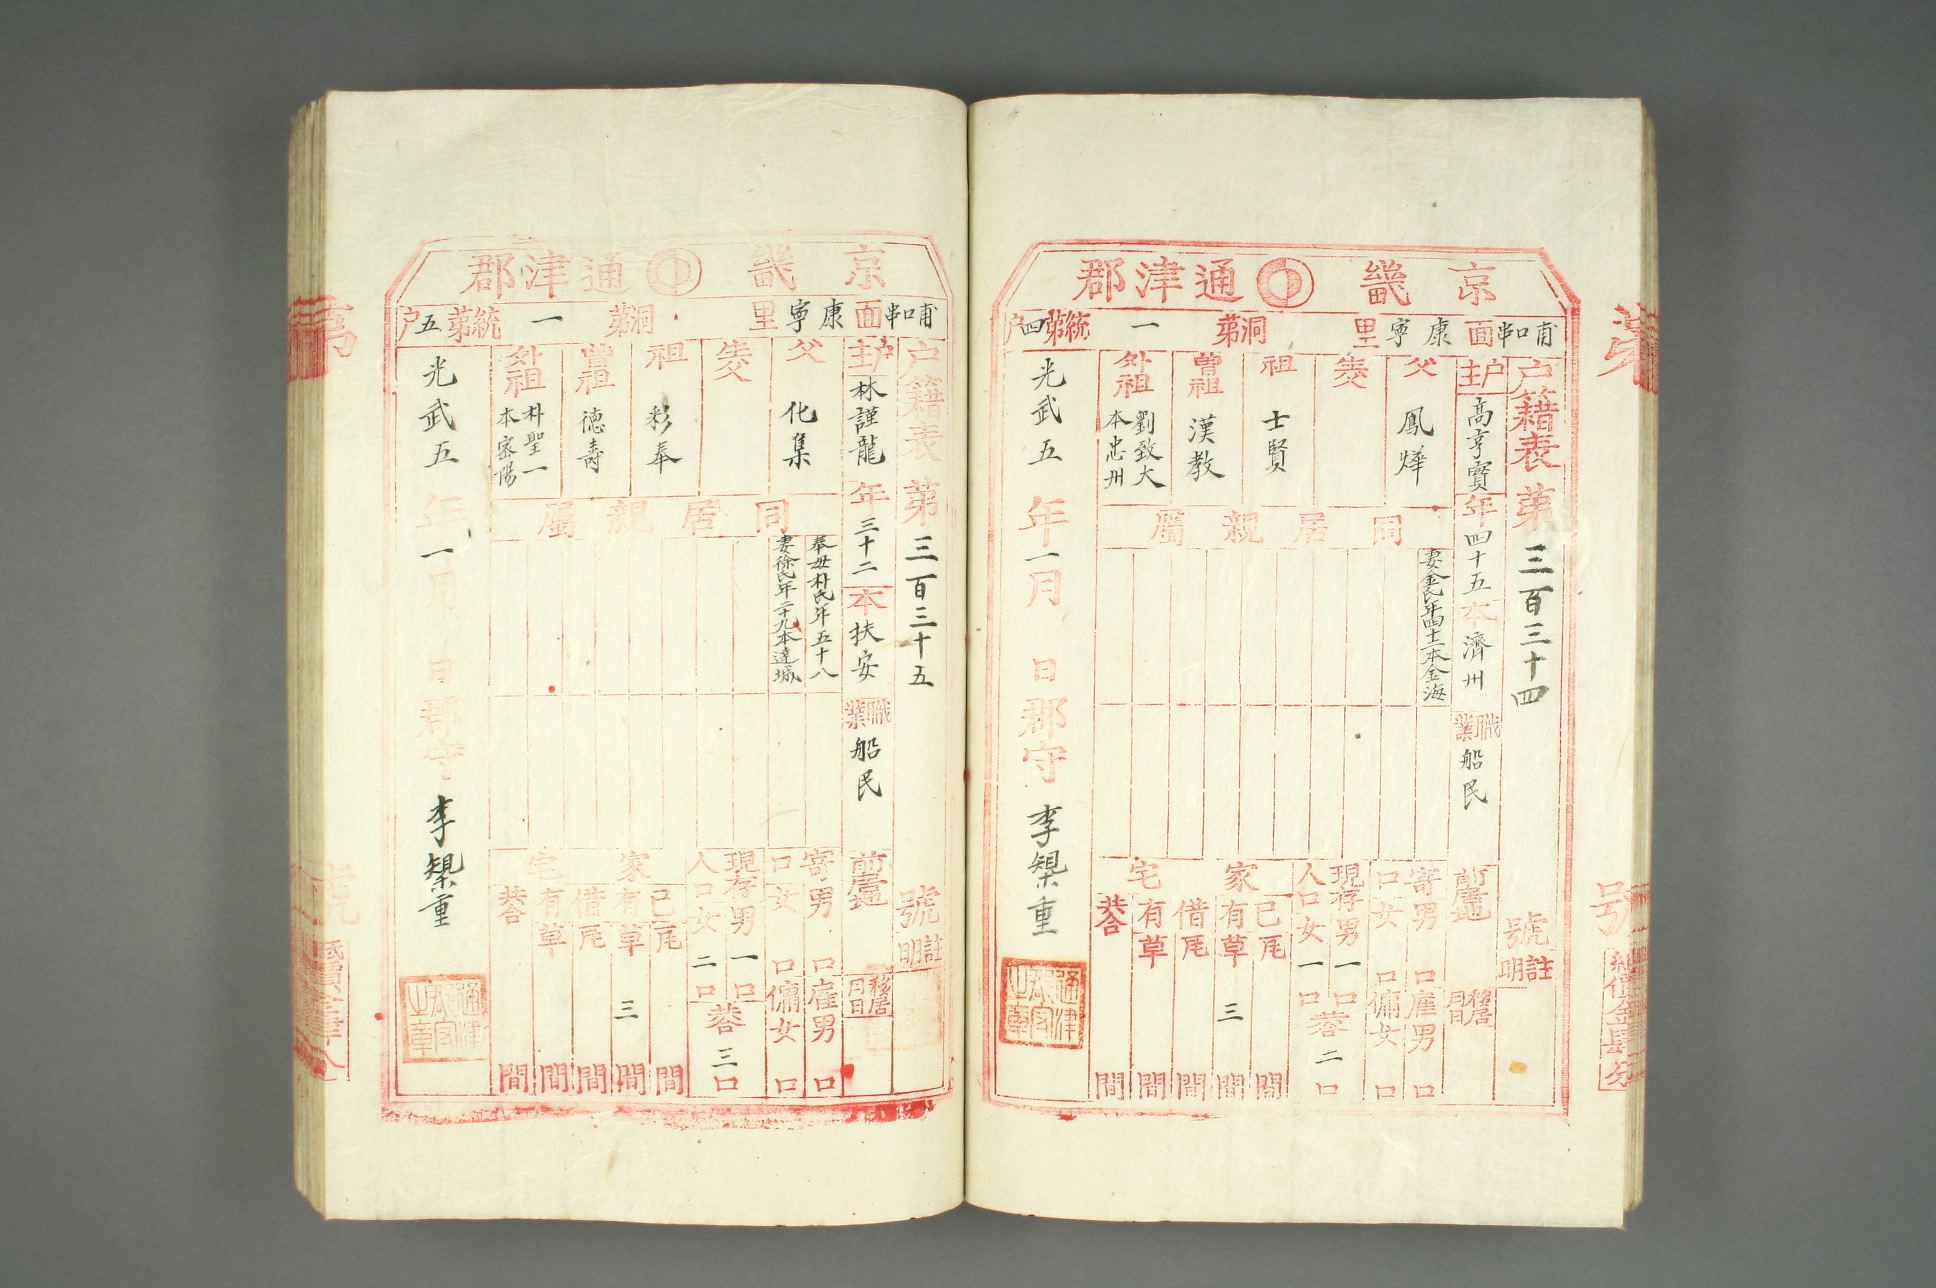 京畿通津郡
甫口串面康寧里 洞第一統第四户
户籍表第三百三十四號
註明
户主高亨寶年四十五本濟州職業船民前居地
移居月日
父鳳燁
生父
祖士賢
曾祖漢教
外祖劉致大
本忠州
同居親屬
妻金氏年四十二本金海
寄口男口雇男口
女口傭女口
現存男一口
人口女一口
共二口
家宅
已有瓦間
草三間
借有瓦間
草間
共合間
光武五年一月日郡守李㮨重
京畿通津郡
甫口串面康寧里 洞第一統第五户
户籍表第三百三十五號
註明
户主林謹龍年三十二本扶安職業船民前居地
移居月日
父化集
生父
祖彩奉
曾祖德壽
外祖朴聖一
本密陽
同居親屬
奉母朴氏年五十八
妻徐氏年二十九本達城
寄口男口雇男口
女口傭女口
現存男一口
人口女二口
共三口
家宅
已有瓦間
草三間
借有瓦間
草間
共合間
光武五年一月日郡守李㮨重